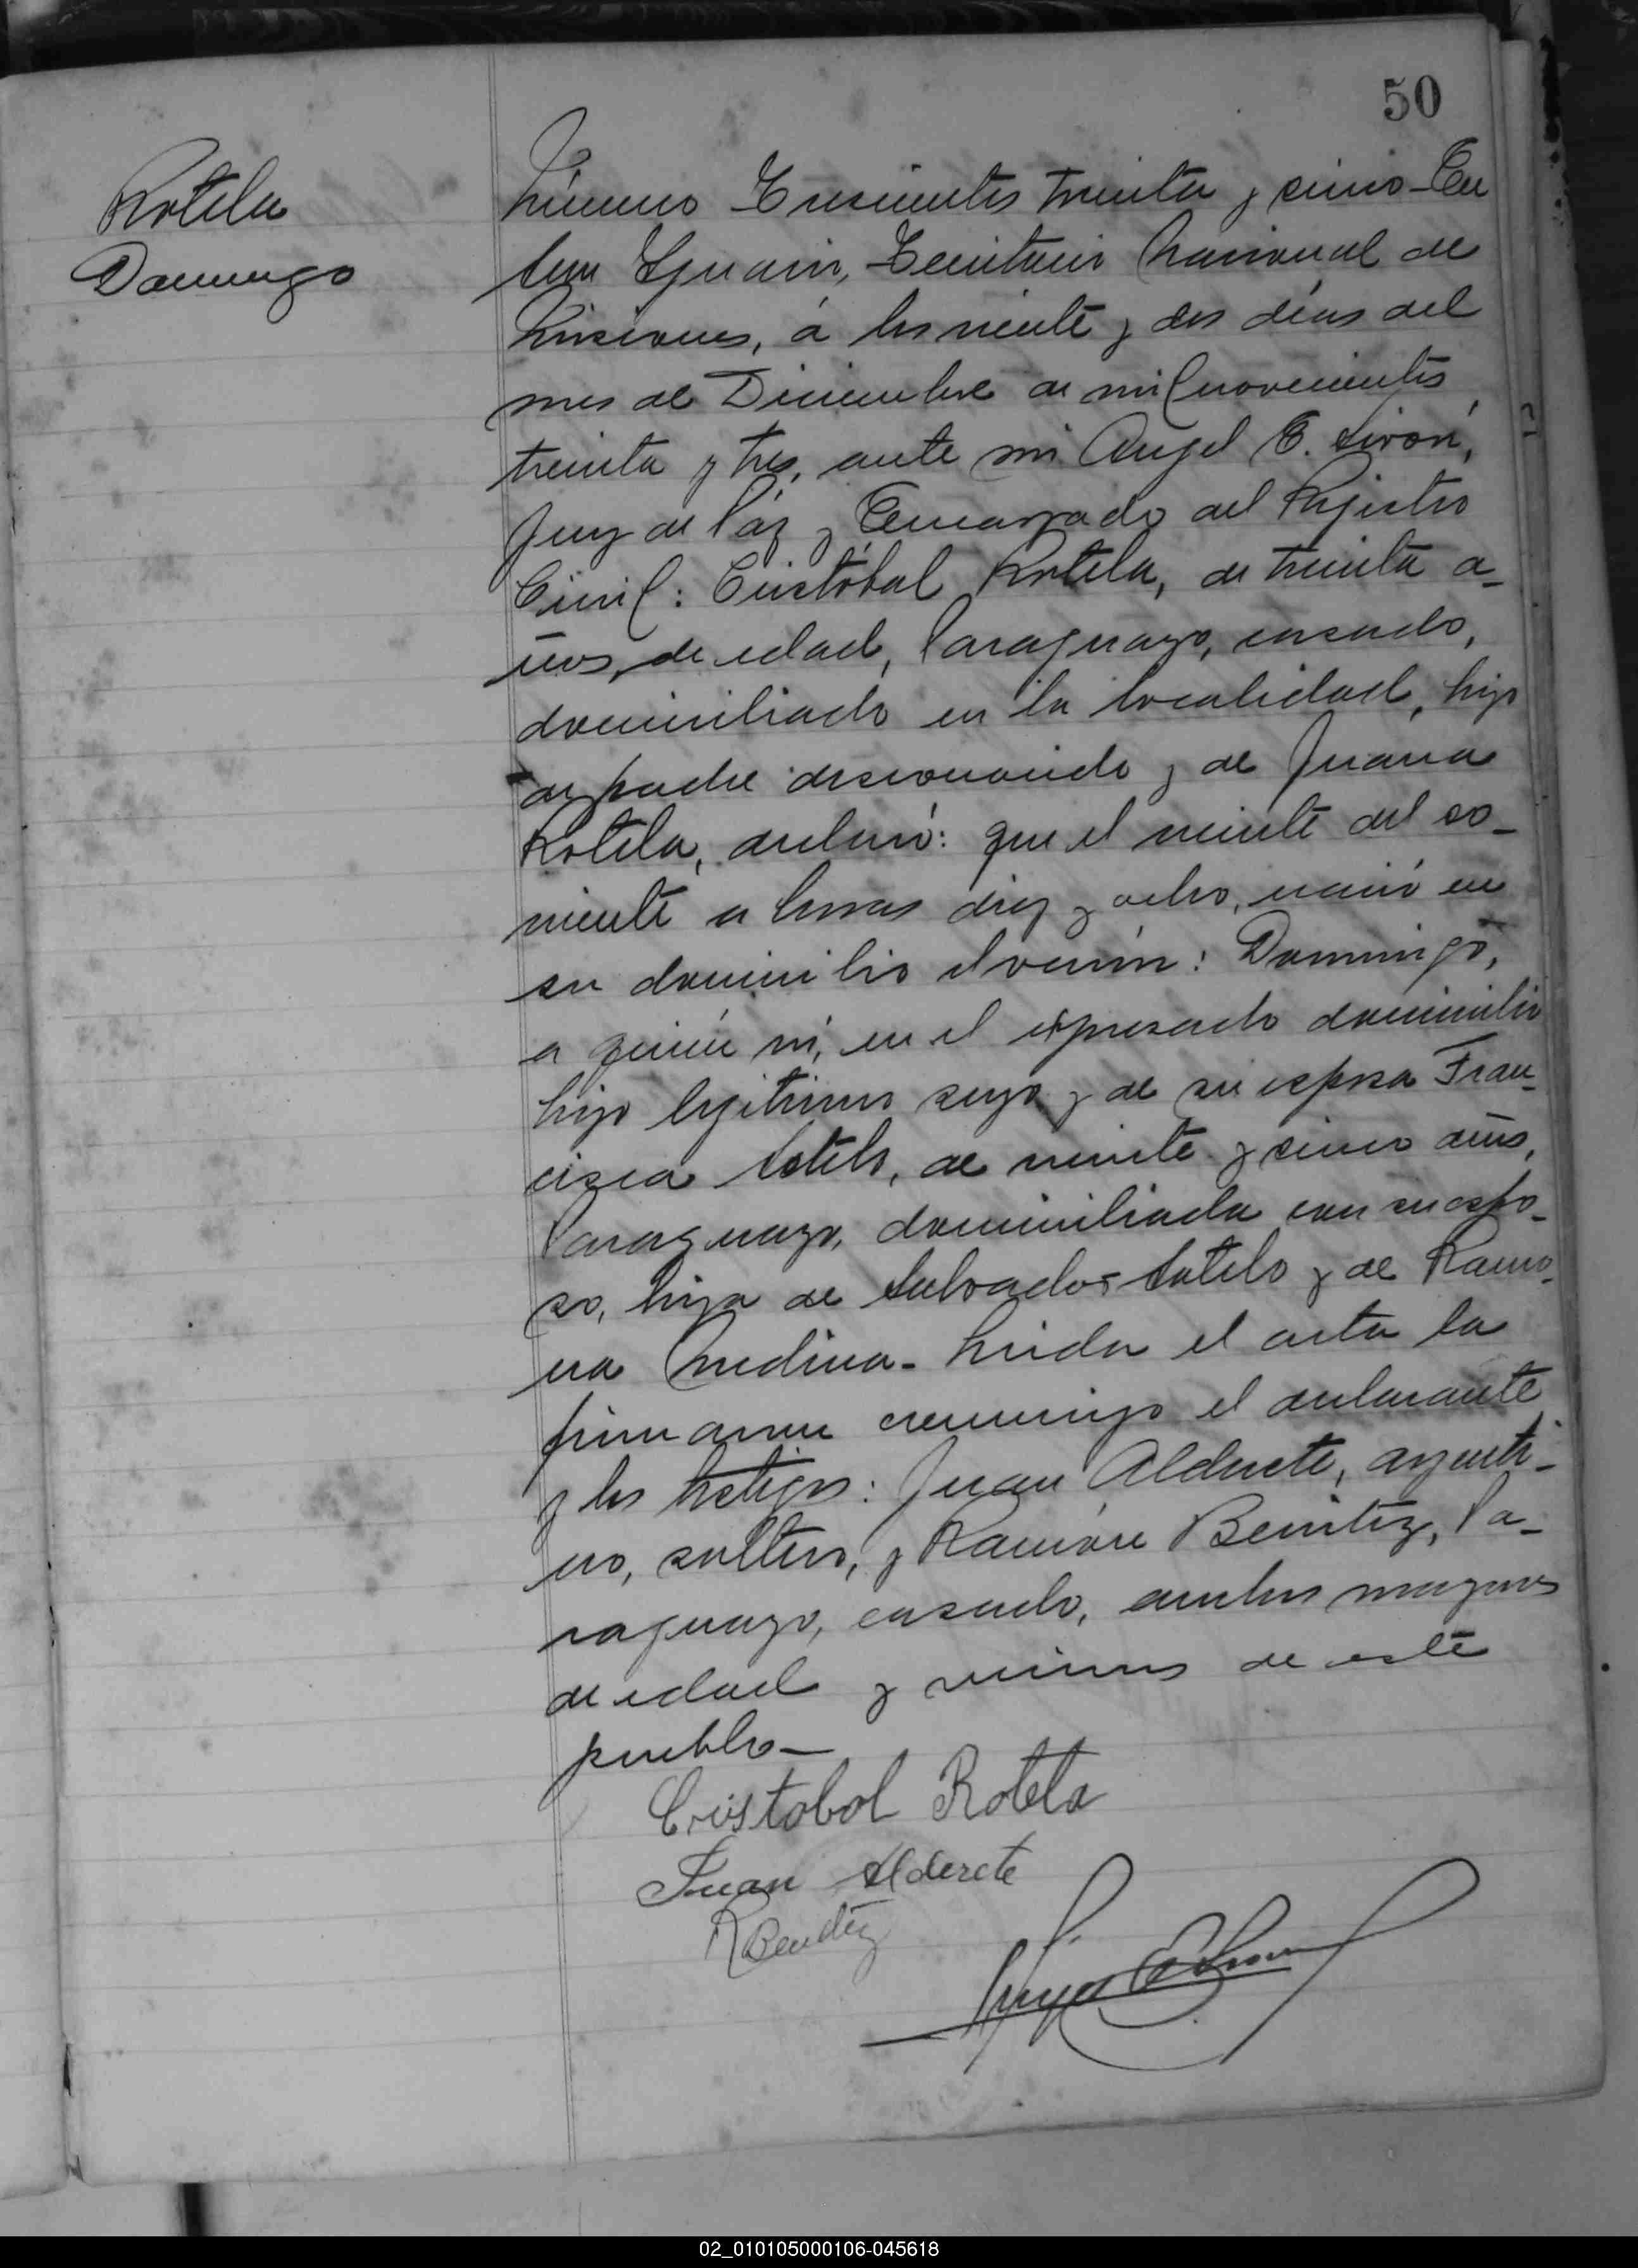 50
Rotela
Domingo
Número Trescientos treinta y cinco - En
San Ignacio, Territorio Nacional de
Misiones, á los veinte y dos días del
mes de Diciembre de mil novecientos
treinta y tres, ante mi Angel E. Sirón,
Juez de Páz y Encargado del Rejistro
Civil: Cristóbal Rotela, de treinta a-
ños, de edad, Paraguayo, casado,
domiciliado en la localidad, hijo
de padre desconocido y de Juana
Rotela, declaró: que el veinte del co-
rriente a horas diez y ocho, nació en
su domicilio el varón: Domingo,
a quién ví, en el expresado domicilio
hijo lejitimo suyo y de su esposa Fran-
cisca Sotelo, de veinte y cinco años,
Paraguayo, domiciliada con su espo-
so, hija de Salvador Sotelo y de Ramo-
na Medina - Leida el acta la
firmaron conmigo el declarante
y los testigos: Juan Alderete, argenti-
no, soltero, y Ramón Benitez, Pa-
raguayo, casado, ambos mayores
de edad y vecinos de este
pueblo -
Cristobol Rotela
Juan Alderete
R Benitez
Angel E Siron
02_010105000106-045618